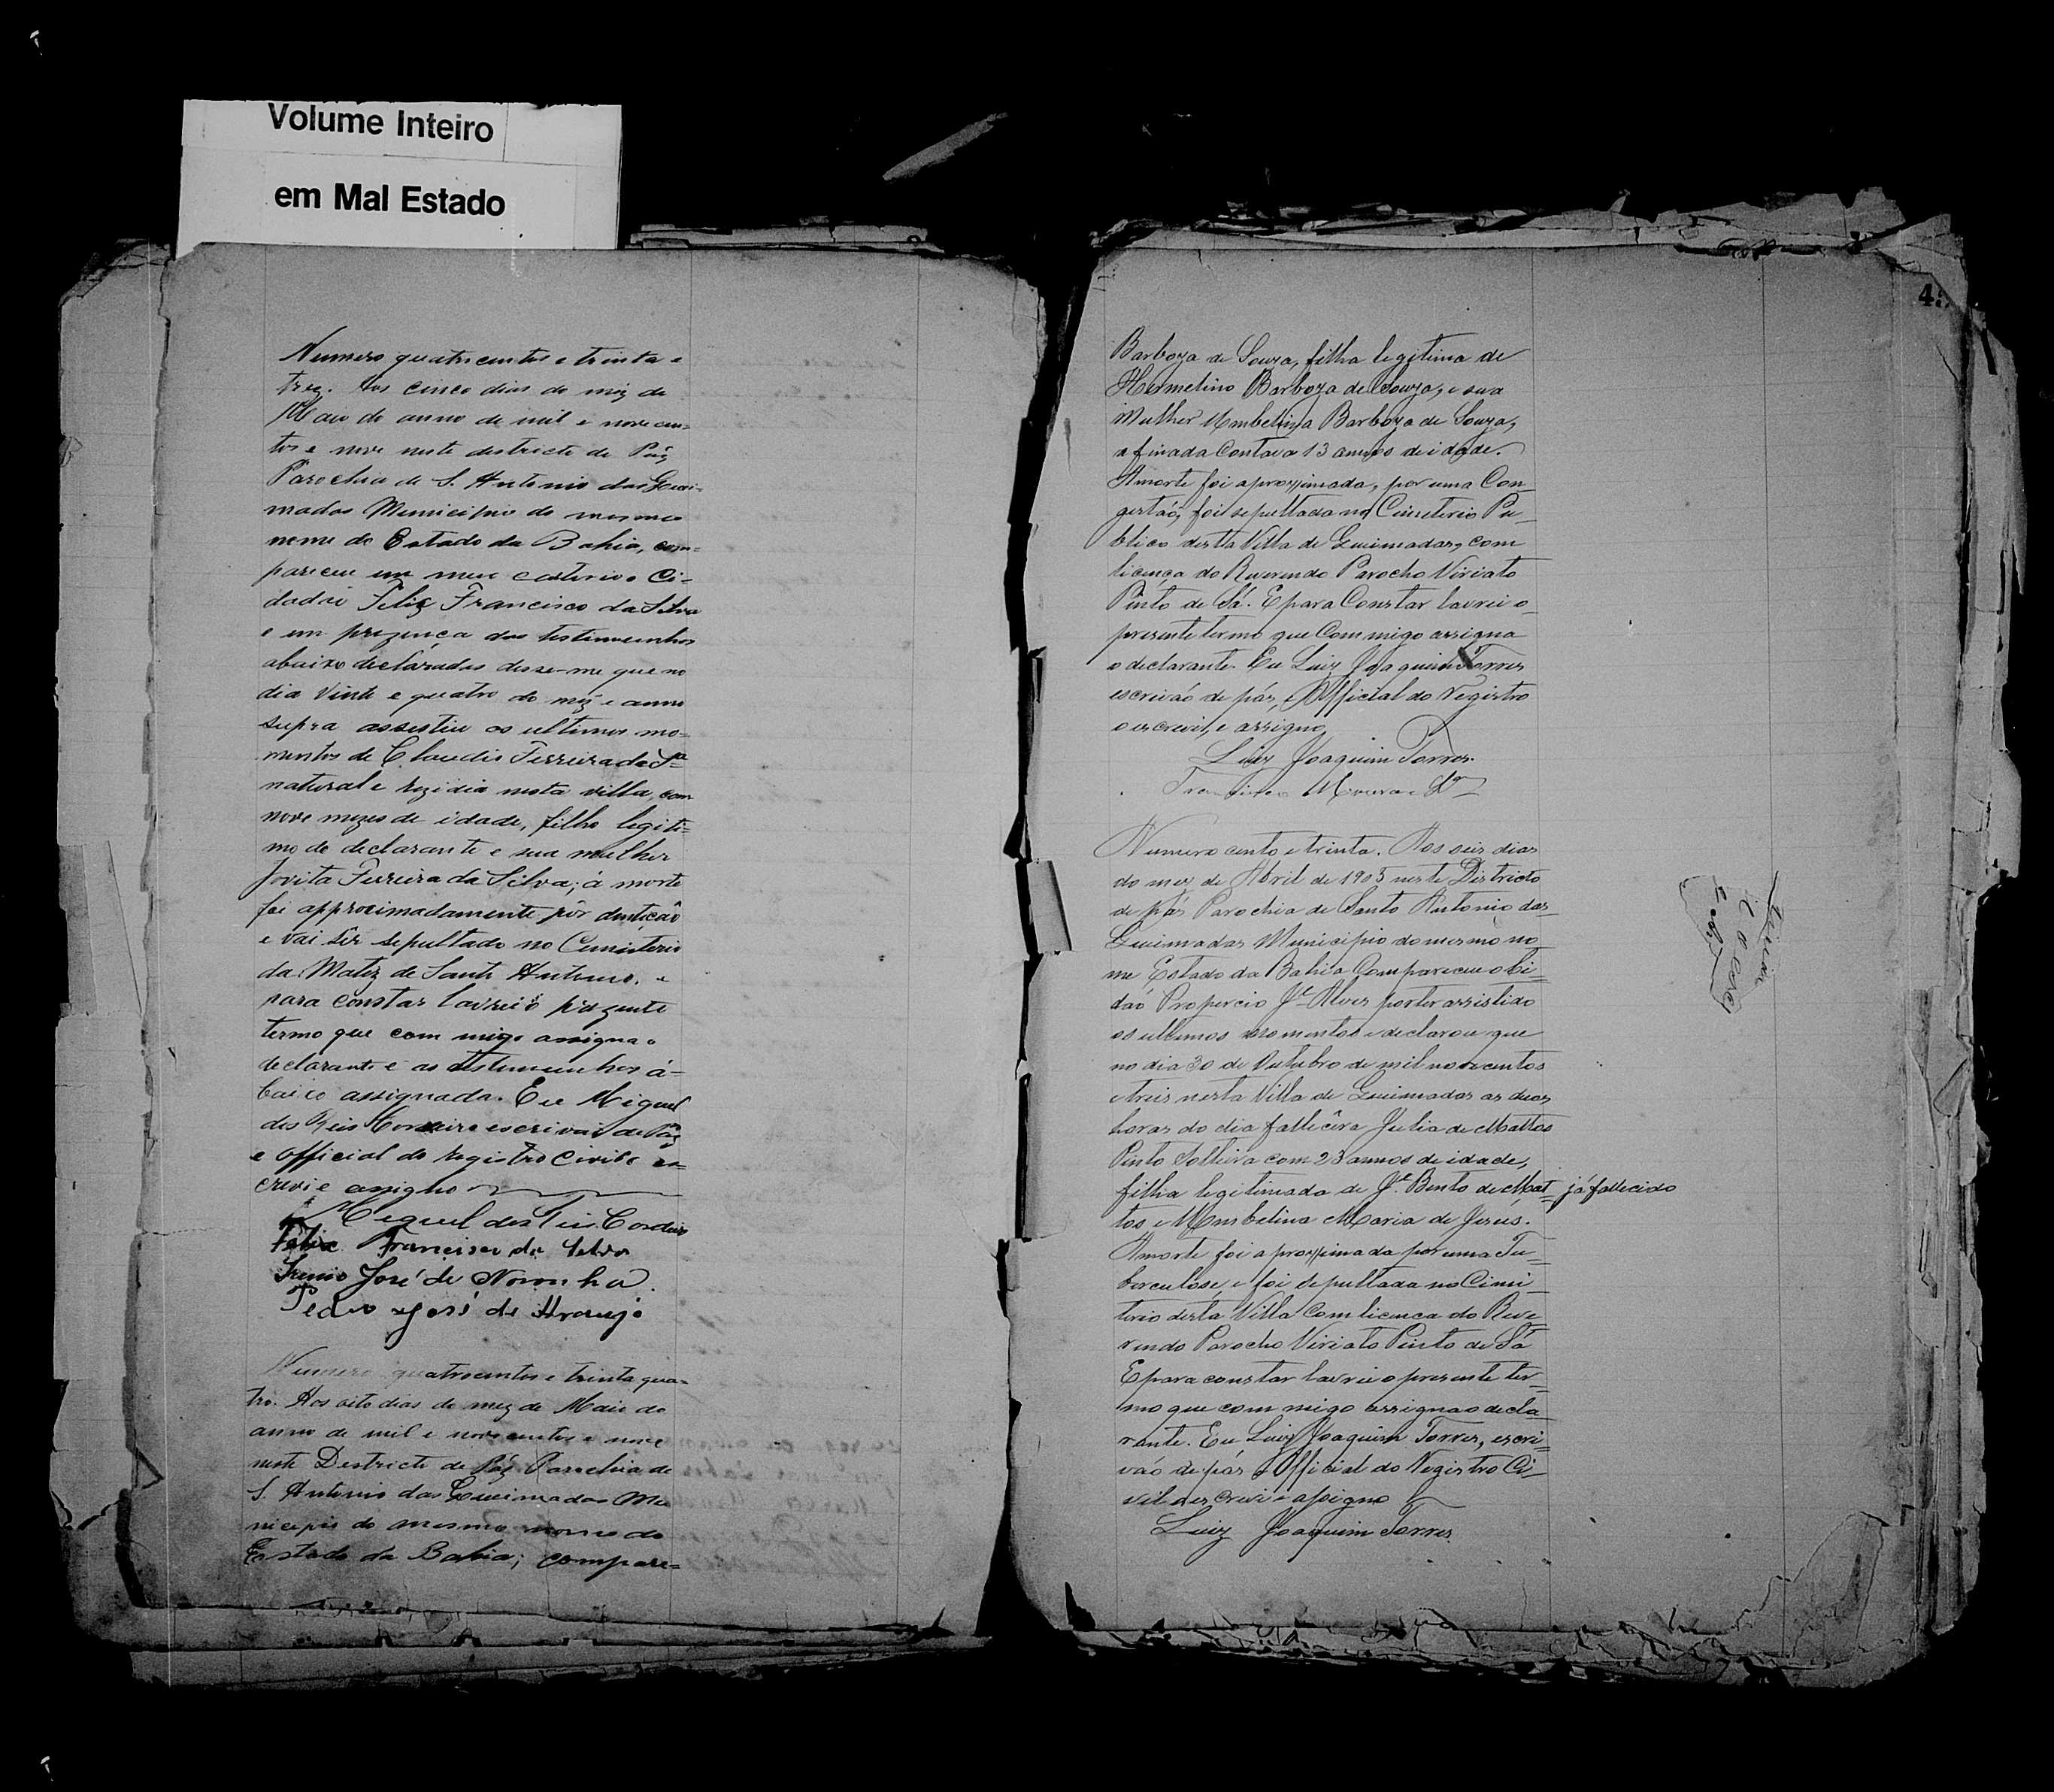 Volume Inteiro
em Mal Estado
Numero quatrucentos e trinta e
trez. Aos cinco dias do mez de
Maio do anno de mil e novecen-
tos e nove neste destricto de Paz
Parochia de S. Antonio das Quei-
madas Municipio do mesmo
nome do Estado da Bahia, com-
pareceu em meu cartorio o Ci-
dadão Felix Francisco da Silva
e em prezença das testimunhas
abaixo declaradas disse-me que no
dia vinte e quatro do mez e anno
supra assestiu os ultimos mo-
mentos de Claudio Ferreira da Sa
natural e rezidia nesta villa, com
nove mezes de idade, filho legiti-
mo de declarante e sua mulher
Jovita Ferreira da Silva; á morte
foi approximadamente pôr dentição
e vai sêr sepultado no Cemiterio
da Matiz de Santo Antonio. e
para constar lavrei o prezente
termo que com migo assigna o
declarante e as testemunhas á-
baixo assignada. Eu Miguel
dos Reis Cordeiro escrivão de Paz
e official do registro Civil es-
crevi e assigno
Miguel dos Reis Cordeiro
Felix Francisco da Silva
José de Noronha
Pedro José de Araujo
Numero quatrocentos e trinta qua-
tro. Aos oito dias do mez de Maio do
anno de mil e novecentos e nove
neste Destricto de Paz Parochia de
S. Antonio das Queimadas Mu
nicipio do mesmo nome do
Estado da Bahia; compare=
Barboza de Souza, filha legitima de
Hermelino Barboza de Souza, e sua
Mulher Umbelina Barboza de Souza,
a finada Contava 13 annos de idade.
A morte foi aproximada, por uma Con-
gestaõ, foi sepultada no Cimeterio Pu-
blico desta Villa de Queimadas, com
licença do Reverendo Parocho Viriato
Pinto de Sá. E para Constar lavrei o
presente termo que Commigo assigna
o declarante. Eu Luiz Joaquim Torres
escrivaõ de pás, e Official do Registro
o escrevi, e assigno
Luiz Joaquim Torres.
Numero cento e trinta. Aos seis dias
do mez de Abril de 1903 neste Districto
de pás Parochia de Santo Antonio das
Queimadas Municipio do mesmo no
me Estado da Bahia Compareceu o Ci=
daõ Propercio Je Alves por ter assistido
os ultimos momentos e declarou que
no dia 30 de Outubro de mil novecentos
e treis nesta Villa de Queimadas as duas
horas do dia fallecêra Julia de Mattos
Pinto Solteira com 23 annos de idade,
filha legitimada de Je Bento de Mat= já fallecido
tos e Umbelina Maria de Jesus.
A morte foi aproximada por uma Tu=
berculose, e foi sepultada no Cimi-
terio desta Villa Com licença do Reve
rendo Parocho Viriato Pinto de Sá
E para constar lavrei o presente ter=
mo que com migo assigna o decla
rante. Eu Luiz Joaquim Torres, escri=
vaõ de pás e Official do Registro Ci-
vil o escrevi e assigno
Luiz Joaquim Torres.